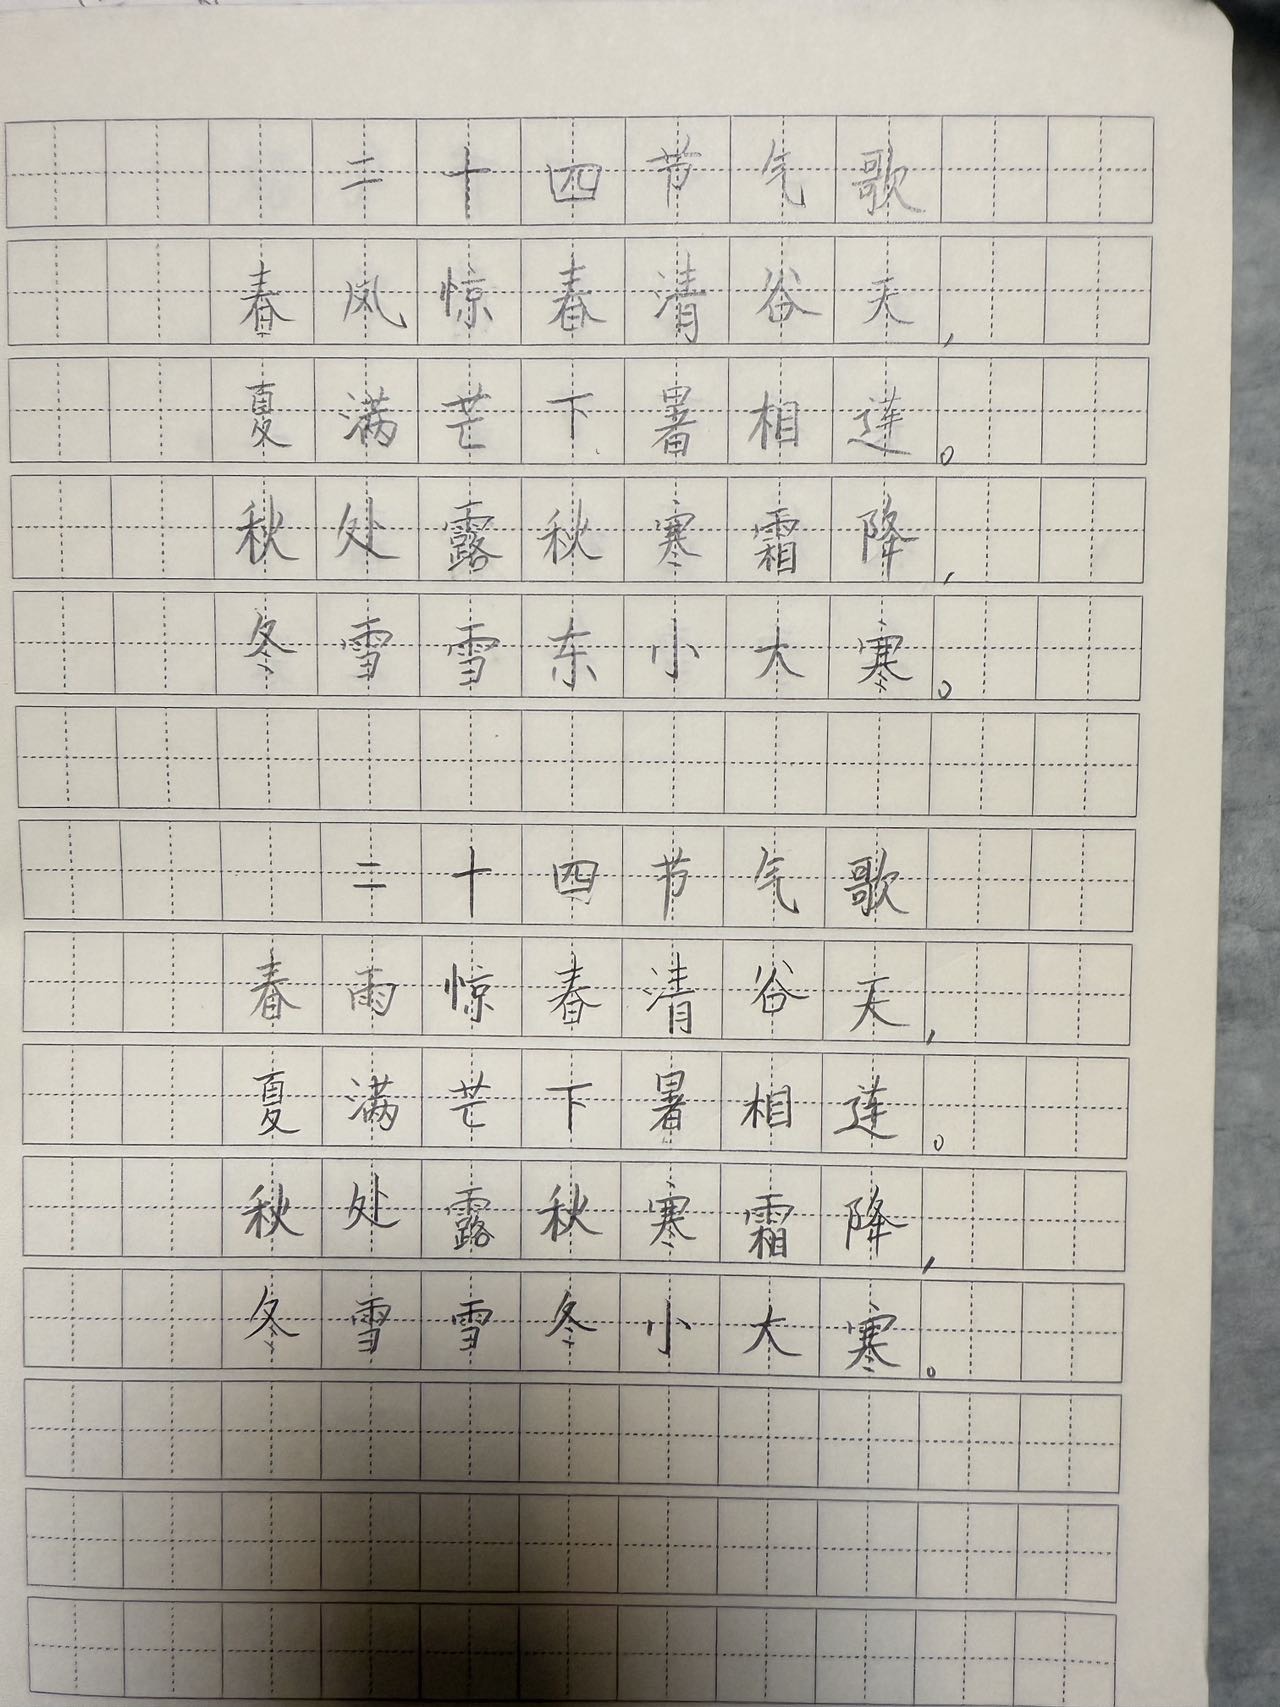 二十四节气歌
春风惊春清谷天，
夏满芒下暑相莲。
秋处露秋寒霜降，
冬雪雪东小大寒。
二十四节气歌
春雨惊春清谷天，
夏满芒下暑相莲。
秋处露秋寒霜降，
冬雪雪冬小大寒。